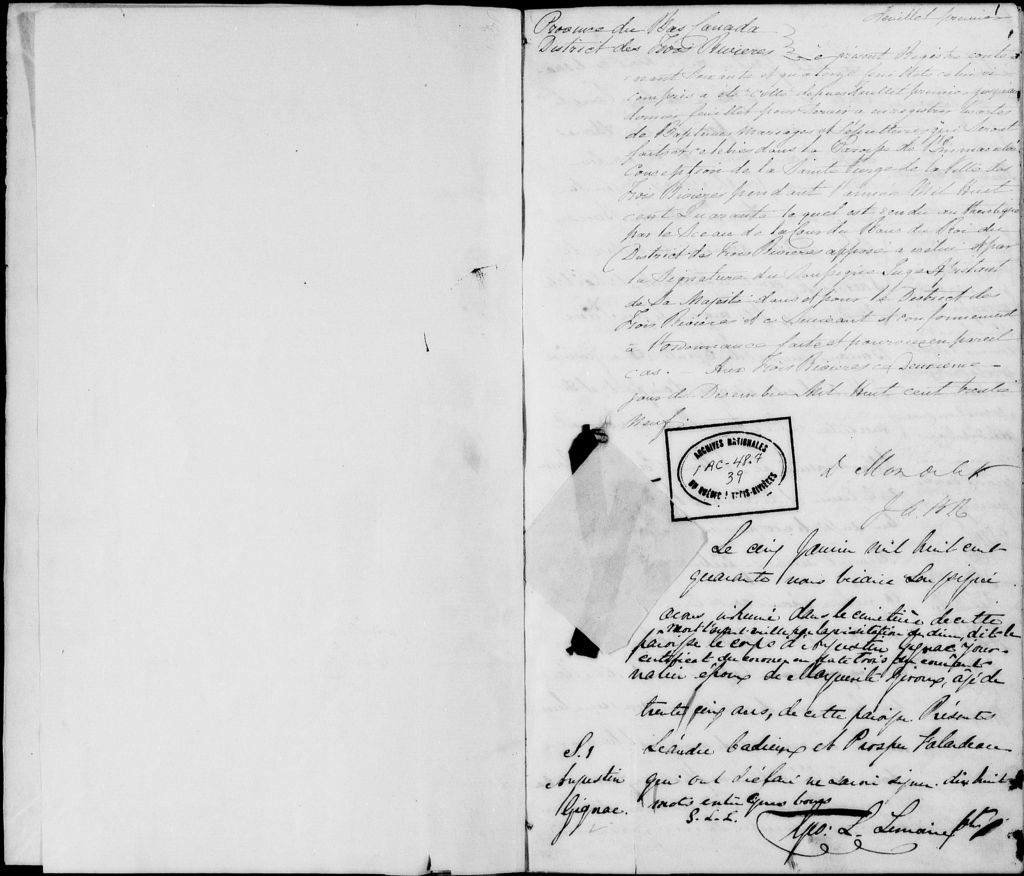 Feuillet premier
1
Province du Bas Canada
District des Trois Rivieres
Le présent Registre conte-
nant Soixante et quatorze feuillets celui-ci
compris a été cotté depuis feuillet premier jusqu'au
dernier feuillet pour servir a enregistrer les actes
de Baptêmes Marriages et Sépultures qui seront
faits et celebrés dans la Paroisse de l'Immaculée
Conception de la Sainte Vierge de la Ville des
Trois Rivières pendant l'année Mil huit
cent Quarante lequel est rendu authentique
par le Sceau de la Cour du Banc du Roi du
District des Trois Rivières apposé a icelui et par
la Signature du Juge
de Sa Majesté dans et pour le District des
Trois Rivières et ce Suivant et conformement
à l'Ordonnance faite et pourvue en pareil
cas. — Aux Trois Rivières ce Deuxieme
jour de Decembre Mil huit cent trente
neuf.
ARCHIVES NATIONALES
1 AC-48.7
39
DU QUÉBEC À TROIS-RIVIÈRES
Le cinq Janvier mil huit cent
quarante nous vicaire Soussigné
avons inhumé dans le cimetière de cette
mort l'avant-veille par la visitation de dieu, dit le
paroisse le corps d'Augustin Gignac Jour-
certificat du coroner en date trois du courant
nalier époux de Marguerite Giroux, âgé de
trente cinq ans, de cette paroisse Présents
S. 1
Augustin
Gignac.
Léandre Cadieux et Prosper Valardeau
qui ont déclaré ne savoir signer. dix huit
mots entre lignes bons
G. L. L.
Geo: L. Lemaire Ptre